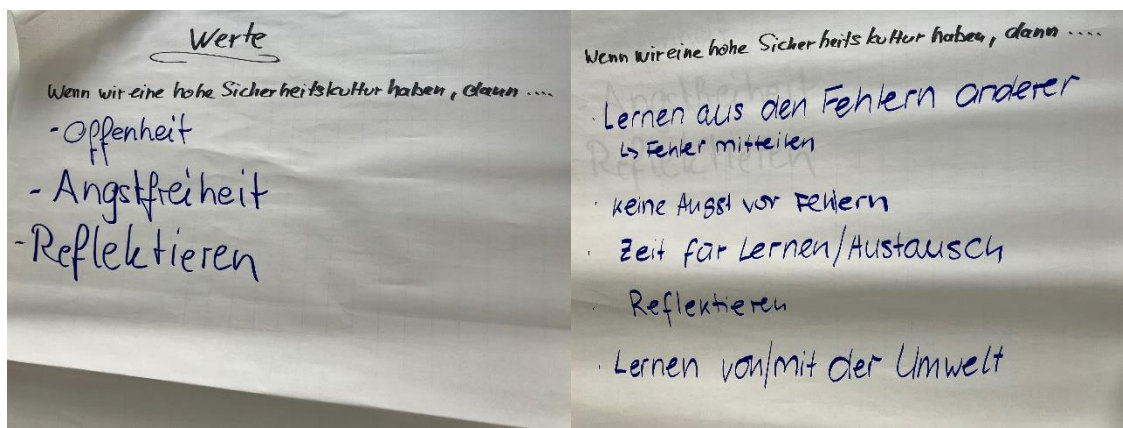 Werte
Wenn wir eine hohe Sicherheitskultur haben, dann ....
- Offenheit
- Angstfreiheit
- Reflektieren
Wenn wir eine hohe Sicherheitskultur haben, dann ....
· Lernen aus den Fehlern anderer
↳ Fehler mitteilen
· keine Angst vor Fehlern
· Zeit für Lernen/Austausch
· Reflektieren
· Lernen von/mit der Umwelt